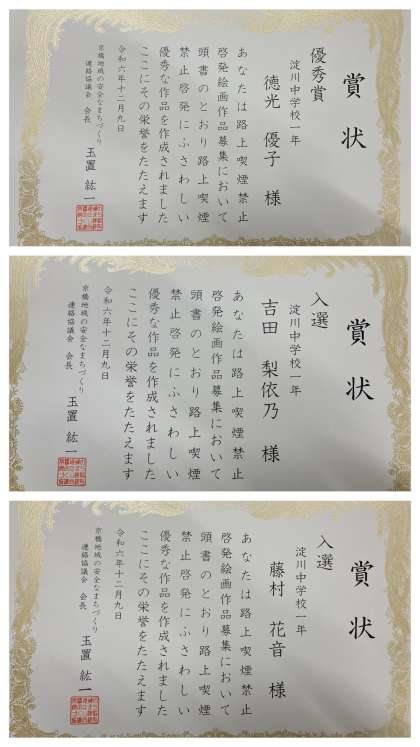 賞状
優秀賞
淀川中学校一年
徳光 優子 様
あなたは路上喫煙禁止
啓発絵画作品募集において
頭書のとおり路上喫煙
禁止啓発にふさわしい
優秀な作品を作成されました
ここにその栄誉をたたえます
令和六年十二月九日
京橋地域の安全なまちづくり
連絡協議会 会長
玉置 紘一
賞状
入選
淀川中学校一年
吉田 梨依乃 様
あなたは路上喫煙禁止
啓発絵画作品募集において
頭書のとおり路上喫煙
禁止啓発にふさわしい
優秀な作品を作成されました
ここにその栄誉をたたえます
令和六年十二月九日
京橋地域の安全なまちづくり
連絡協議会 会長
玉置 紘一
賞状
入選
淀川中学校一年
藤村 花音 様
あなたは路上喫煙禁止
啓発絵画作品募集において
頭書のとおり路上喫煙
禁止啓発にふさわしい
優秀な作品を作成されました
ここにその栄誉をたたえます
令和六年十二月九日
京橋地域の安全なまちづくり
連絡協議会 会長
玉置 紘一